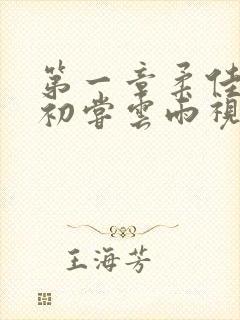 第一章柔佳
初尝雲雨視
王海芳